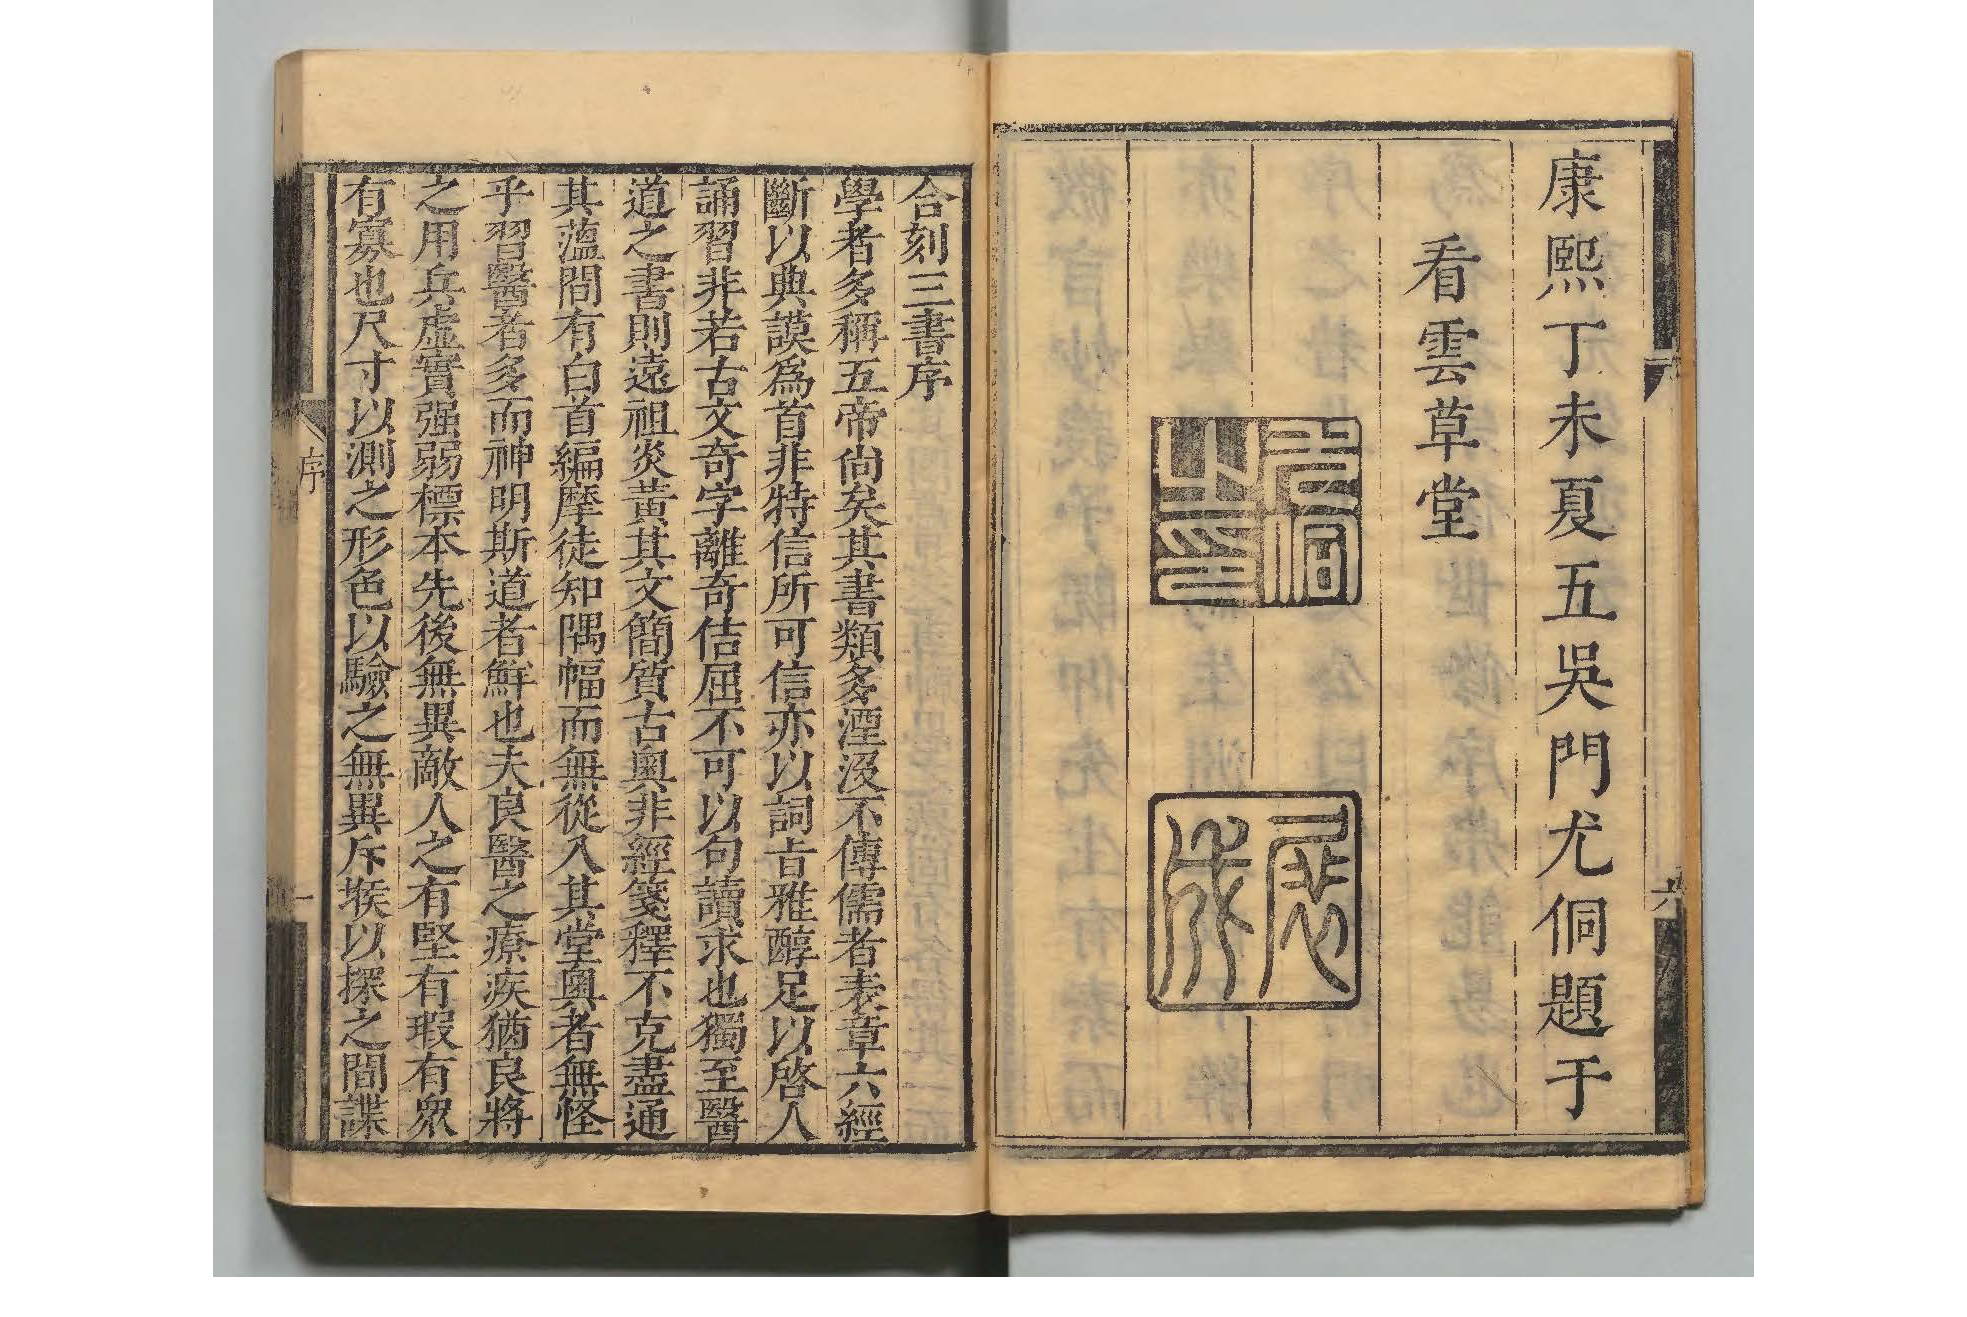 康熙丁未夏五吳門尤侗題于
看雲草堂
尤侗之印
展成
六
合刻三書序
學者多稱五帝尚矣其書類多湮沒不傳儒者表章六經
斷以典謨爲首非特信所可信亦以詞旨雅醇足以啓人
誦習非若古文奇字離奇佶屈不可以句讀求也獨至醫
道之書則遠祖炎黃其文簡質古奧非經箋釋不克盡通
其蘊間有白首編摩徒知隅幅而無從入其堂奧者無怪
乎習醫者多而神明斯道者鮮也夫良醫之療疾猶良將
之用兵虛實强弱標本先後無異敵人之有堅有瑕有眾
有寡也尺寸以測之形色以驗之無異斥堠以探之間諜
序
一